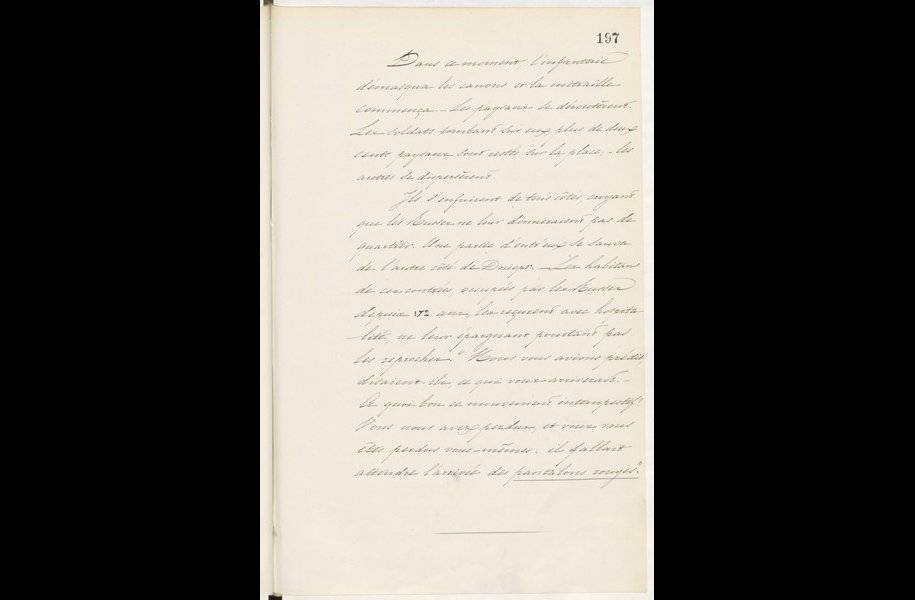 197
Dans ce moment, l'infanterie
démasqua les canons et la mitraille
commença. - Les paysans se
Les soldats tombant sur eux plus de deux
cents paysans sont restés sur la place, - les
autres se dispersèrent.
Ils s'enfuirent de tous côtés, croyant
que les Russes ne leur donneraient pas de
quartier. Une partie d'entr'eux se sauva
de l'autre côté de Dnieper. - Les habitans
de ces contrées, occupées par les Russes
depuis 172 ans, les reçurent avec hospita
lité, ne leur épargnant pourtant pas
les reproches. "Nous vous avions prédit,
disaient-ils, ce qui vous arriverait. -
A quoi bon ce mouvement intempestif?
Vous nous avez perdus, et vous vous
êtes perdus vous-mêmes; il fallait
attendre l'arrivée des pantalons rouges."